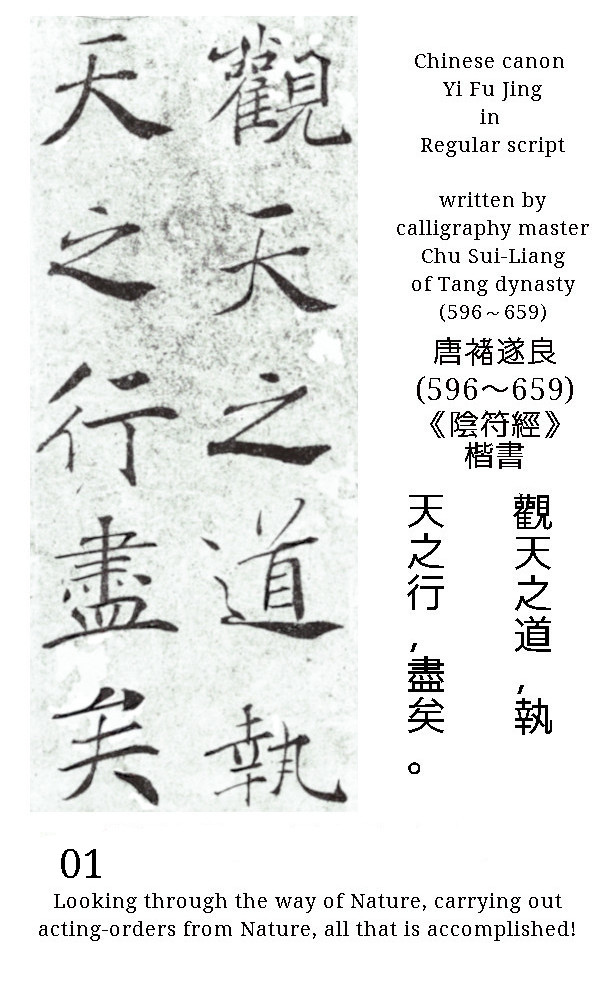 觀天之道執
天之行盡矣
Chinese canon
Yi Fu Jing
in
Regular script
written by
calligraphy master
Chu Sui-Liang
of Tang dynasty
(596～659)
唐褚遂良
(596～659)
《陰符經》
楷書
觀天之道,執
天之行,盡矣。
01
Looking through the way of Nature, carrying out
acting-orders from Nature, all that is accomplished!